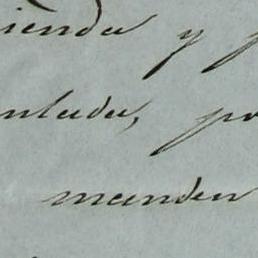 ienda y p
ntada, po
manden